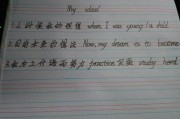 My ideal
1.小时候我的理想 when I was young I a child
2.目前未来的想法 Now, my dream is to become
3.为 工作 而努力 function 只做 study hard